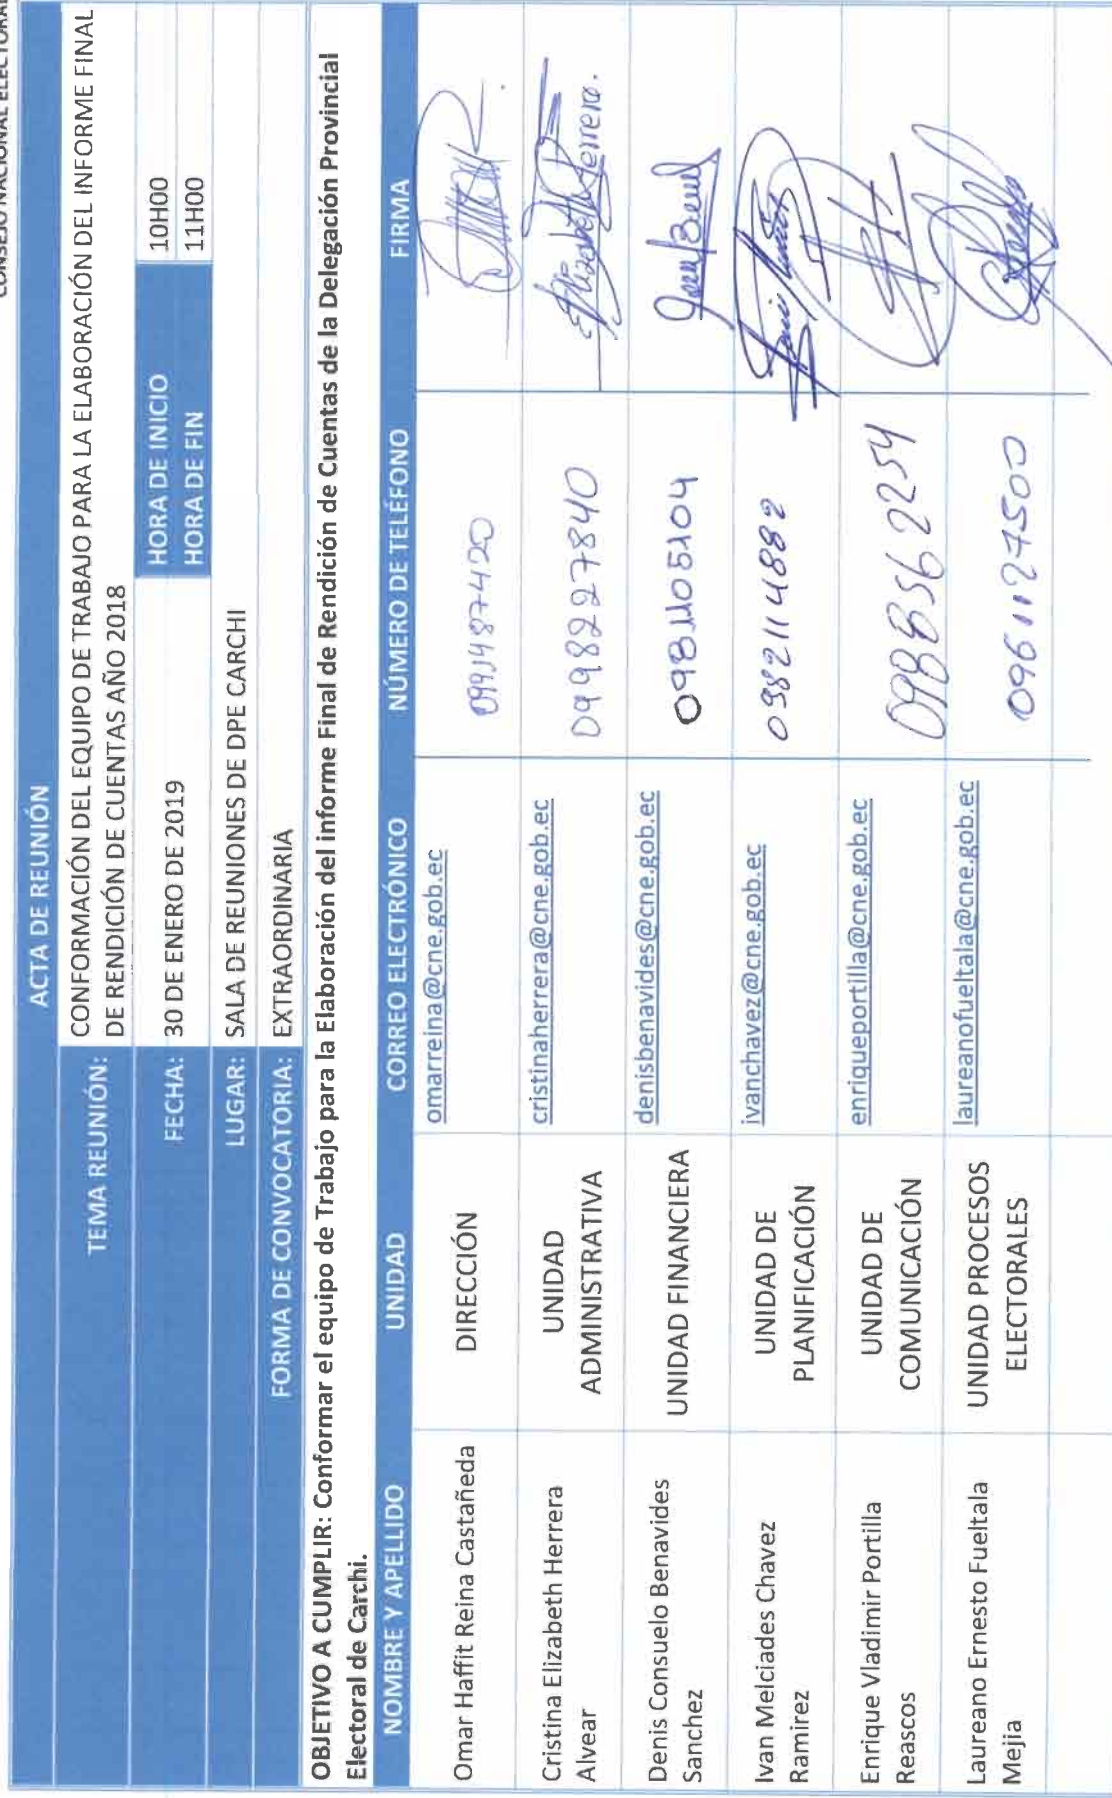 CONSEJO NACIONAL ELECTORAL
ACTA DE REUNIÓN
TEMA REUNIÓN: CONFORMACIÓN DEL EQUIPO DE TRABAJO PARA LA ELABORACIÓN DEL INFORME FINAL
DE RENDICIÓN DE CUENTAS AÑO 2018
FECHA: 30 DE ENERO DE 2019 HORA DE INICIO 10H00
HORA DE FIN 11H00
LUGAR: SALA DE REUNIONES DE DPE CARCHI
FORMA DE CONVOCATORIA: EXTRAORDINARIA
OBJETIVO A CUMPLIR: Conformar el equipo de Trabajo para la Elaboración del informe Final de Rendición de Cuentas de la Delegación Provincial
Electoral de Carchi.
NOMBRE Y APELLIDO UNIDAD CORREO ELECTRÓNICO NÚMERO DE TELÉFONO FIRMA
Omar Haffit Reina Castañeda DIRECCIÓN omarreina@cne.gob.ec 0991487420
Cristina Elizabeth Herrera
Alvear
UNIDAD
ADMINISTRATIVA
cristinaherrera@cne.gob.ec 0998227840 Elizabeth Herrera.
Denis Consuelo Benavides
Sanchez
UNIDAD FINANCIERA denisbenavides@cne.gob.ec 0981105104
Ivan Melciades Chavez
Ramirez
UNIDAD DE
PLANIFICACIÓN
ivanchavez@cne.gob.ec 0982114882
Enrique Vladimir Portilla
Reascos
UNIDAD DE
COMUNICACIÓN
enriqueportilla@cne.gob.ec 0988562254
Laureano Ernesto Fueltala
Mejia
UNIDAD PROCESOS
ELECTORALES
laureanofueltala@cne.gob.ec 0961127500